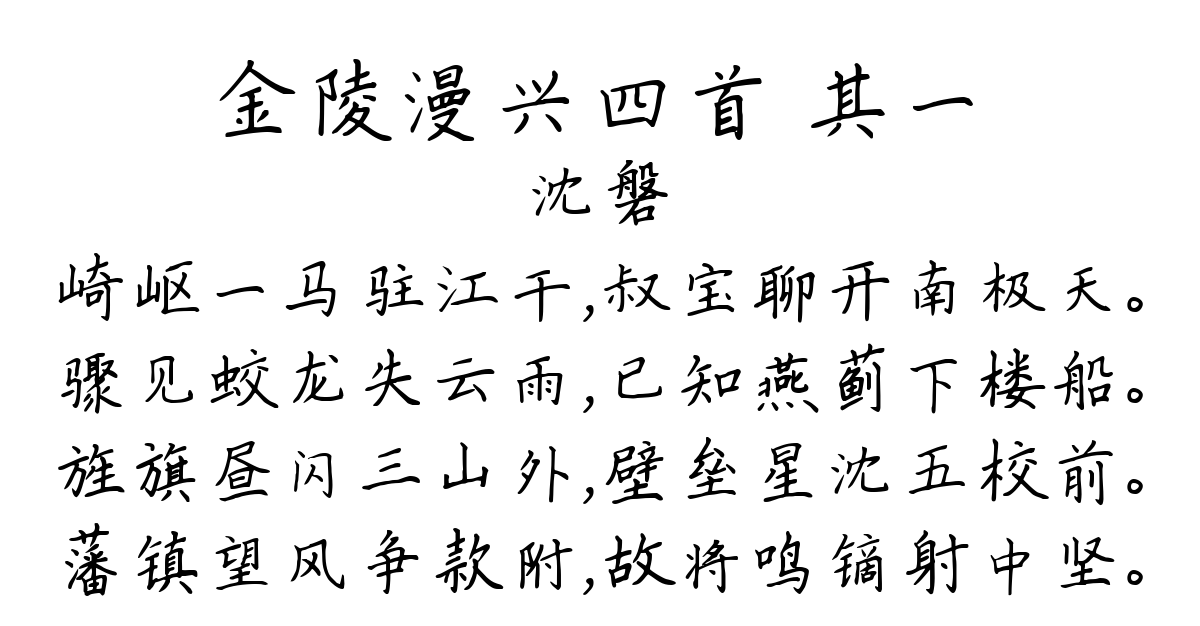 金陵漫兴四首 其一
沈磐
崎岖一马驻江干,叔宝聊开南极天。
骤见蛟龙失云雨,已知燕蓟下楼船。
旌旗昼闪三山外,壁垒星沈五校前。
藩镇望风争款附,故将鸣镝射中坚。